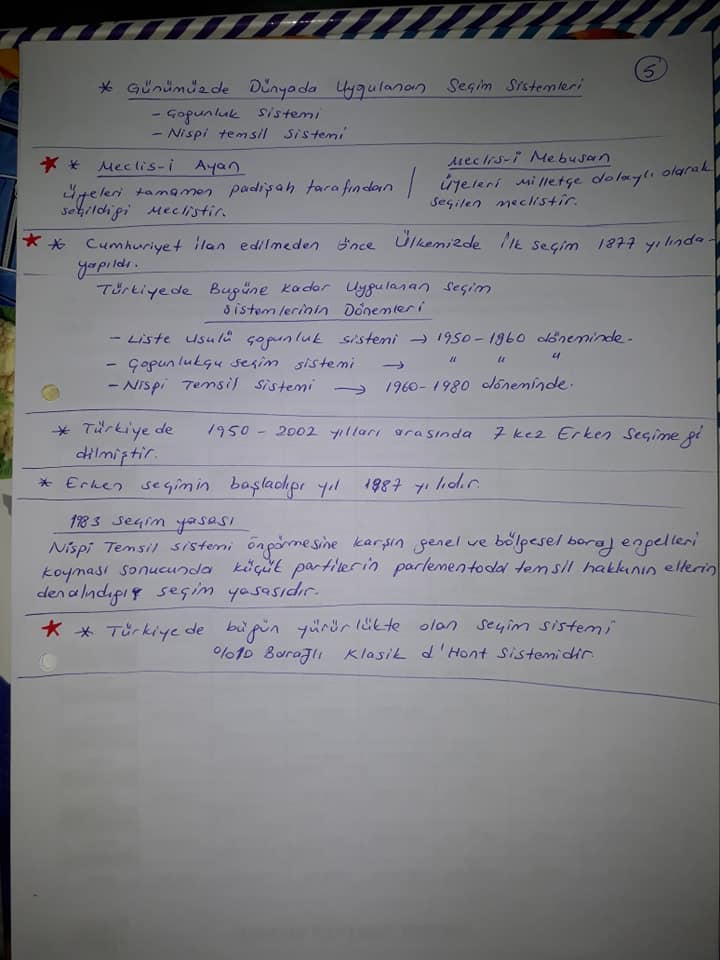 5
* Günümüzde Dünyada Uygulanan Seçim Sistemleri
- Çoğunluk Sistemi
- Nispi temsil sistemi
* Meclis-i Ayan
Üyeleri tamamen padişah tarafından
seçildiği Meclistir.
Meclis-i Mebusan
Üyeleri milletçe dolaylı olarak
seçilen meclistir.
* Cumhuriyet ilan edilmeden önce Ülkemizde ilk seçim 1877 yılında
yapıldı.
Türkiyede Bugüne kadar Uygulanan seçim
sistemlerinin Dönemleri
- Liste usulü çoğunluk sistemi → 1950-1960 döneminde.
- Çoğunlukçu seçim sistemi → " " "
- Nispi Temsil Sistemi → 1960-1980 döneminde.
* Türkiyede 1950-2002 yılları arasında 7 kez Erken Seçime gi
dilmiştir.
* Erken seçimin başladığı yıl 1987 yılıdır.
1983 seçim yasası
Nispi Temsil sistemi öngörmesine karşın genel ve bölgesel baraj engelleri
koyması sonucunda küçük partilerin parlementoda temsil hakkının ellerin
den alındığı seçim yasasıdır.
* Türkiyede bugün yürürlükte olan seçim sistemi
%10 Barajlı Klasik d'Hont Sistemidir.